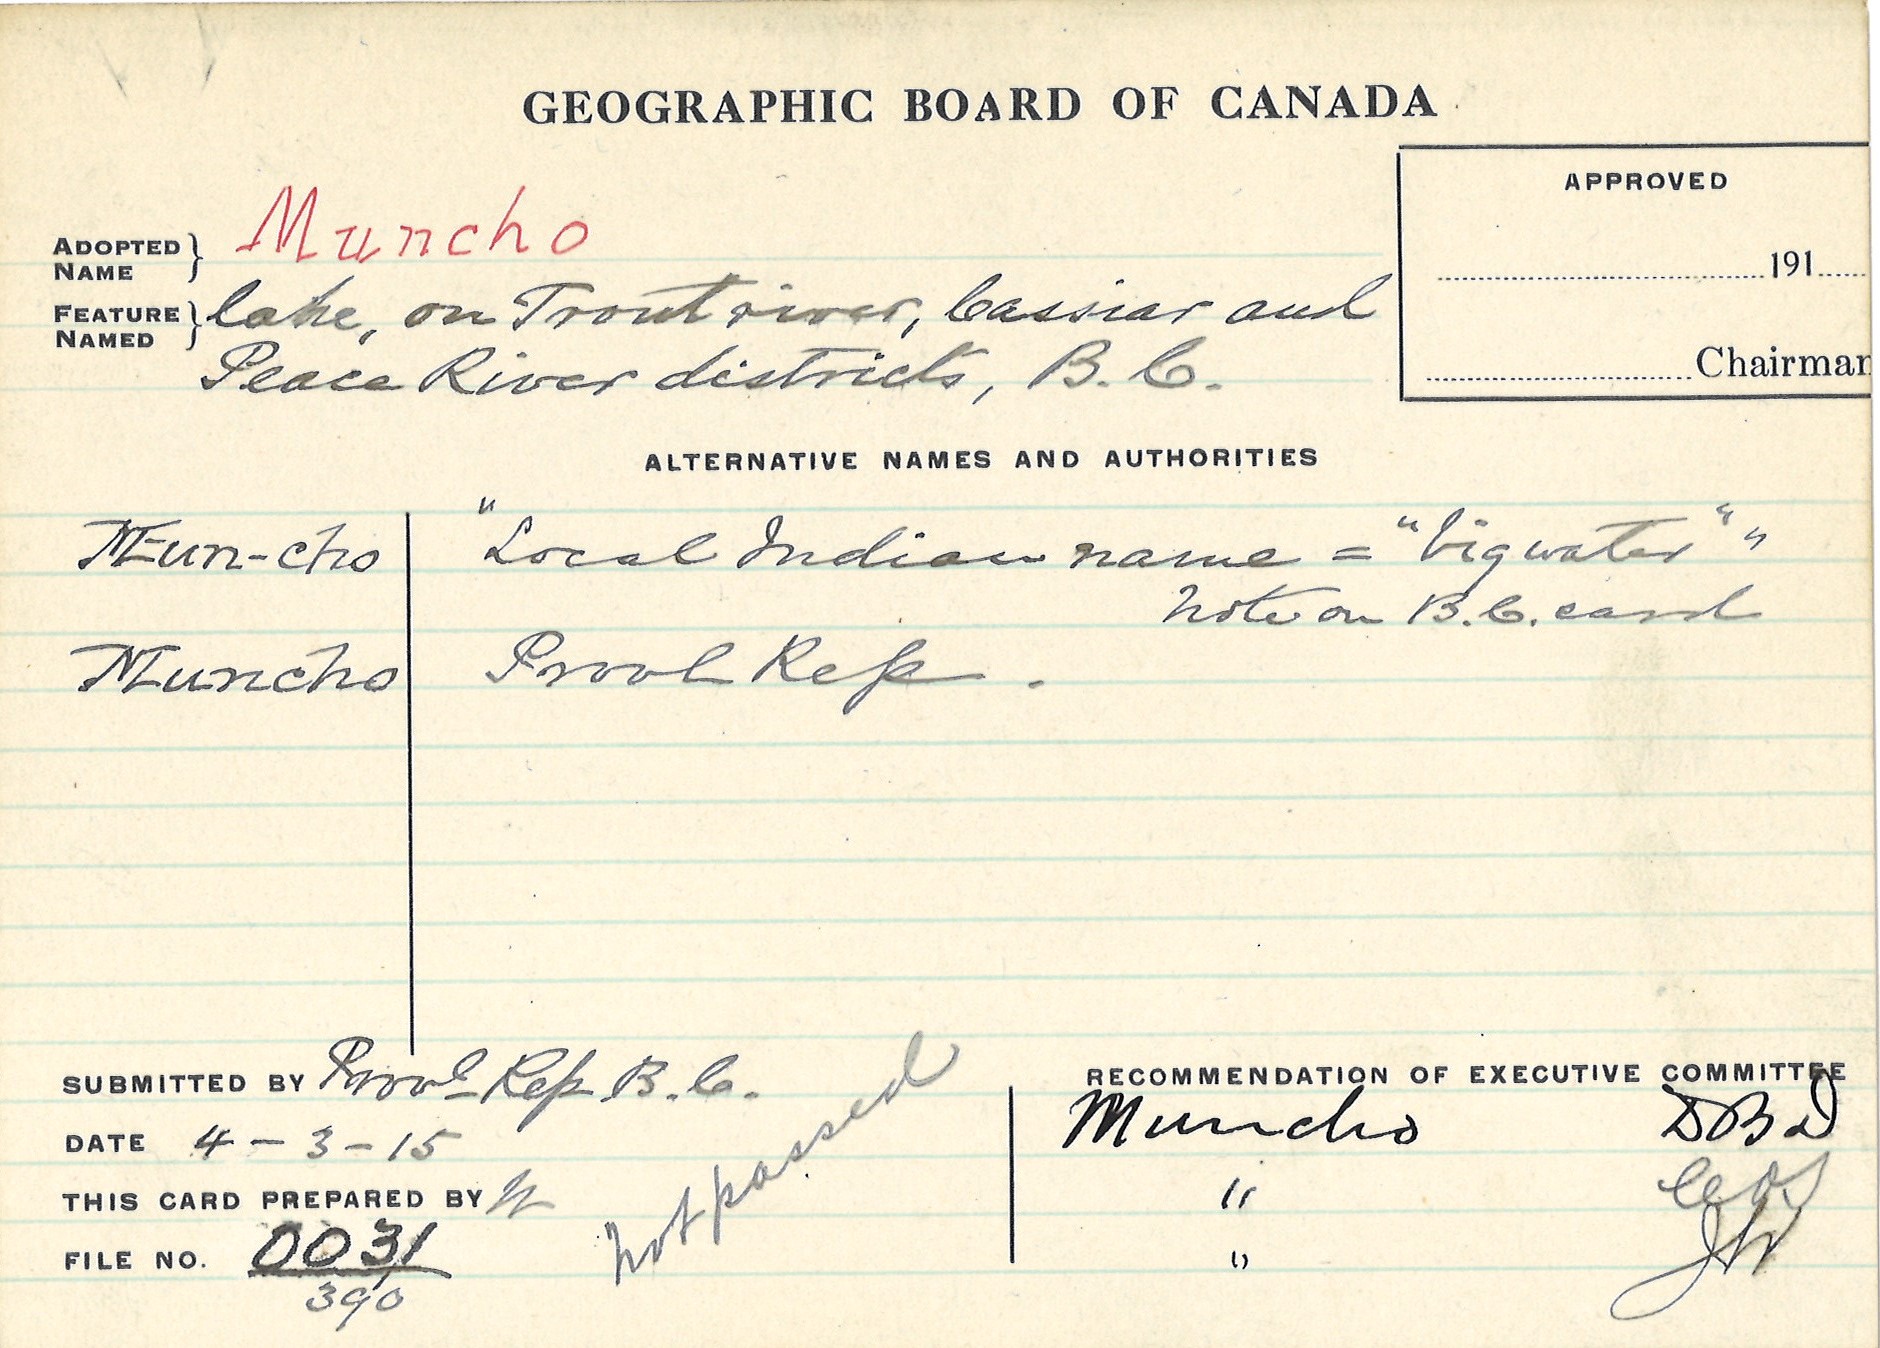 GEOGRAPHIC BOARD OF CANADA
APPROVED
191
Chairman
ADOPTED NAME } Muncho
FEATURE NAMED } lake, on Trout river, Cassiar and
Peace River districts, B.C.
ALTERNATIVE NAMES AND AUTHORITIES
Mun-cho "Local Indian name = "big water" "
Note on B.C. card
Muncho Provl Rep.
SUBMITTED BY Provl Rep B.C.
DATE 4-3-15
THIS CARD PREPARED BY
FILE NO. 0031
390
Not passed
RECOMMENDATION OF EXECUTIVE COMMITTEE
Muncho DBD
"
"